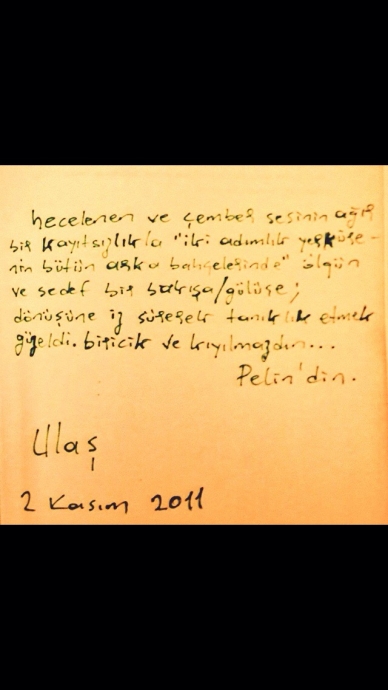 hecelenen ve çember sesinin ağır
bir kayıtsızlıkla "iki adımlık yerküre-
nin bütün arka bahçelerinde" ölgün
ve sedef bir bakışa/gülüşe;
dönüşüne iz sürerek tanıklık etmek
güzeldi. biricik ve kıyılmazdın...
Pelin'din.
Ulaş
2 Kasım 2011